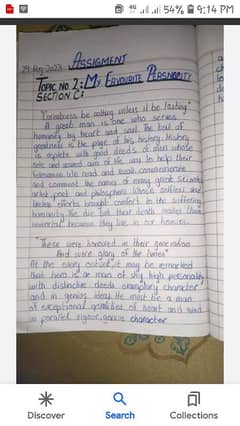 4G 54% 9:14 PM
ASSIGMENT
29-Aug-2023
TOPIC NO 2: MY FAVOURITE PERSNORITY
SECTION C:
"Greatness be nothing unless it be lasting"
A great man is one who serves
humanity by heart and soul. The test of
greatness is the page of his history. History
is replete with good deeds of men whose
sole and sacred aim of life was to help their
fellowmen. We read and recall commemorative
and comment the names of many great
artist, poet and philosophers whose selfless and
efforts brought comfort to the suffering
humanity. He die but their death makes them
immortal because they live in our hearts.
"These were honoured in their generations
And were glory of the times"
At the very outset, it may be remarked
that hero is a man of very high personality
with distinctive deeds exemplary character
and in genius ideas. He must be a man
of exceptional qualities of heart and mind
character
Discover
Search
Collections